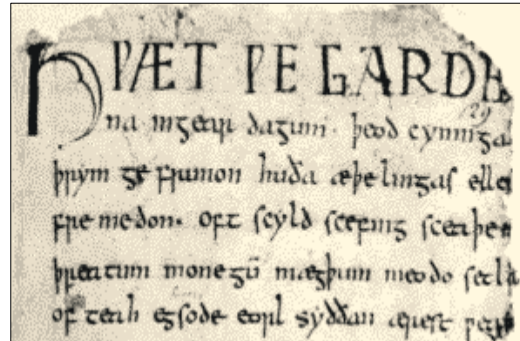 HǷÆT ǷE GARDE
na ingear dagum · þeod cyninga
þrym ge frunon huða æþelingas elle
fre medon. oft scyld scefing sceaþe
þreatum monegū mægþum meodo setla
of teah egsode eorl syððan ærest